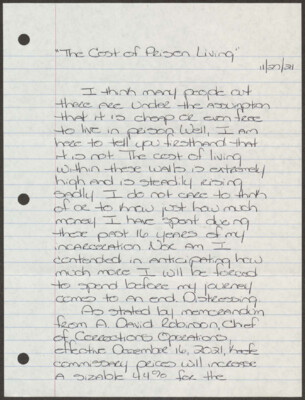 "The Cost of Prison Living"
11/27/21
I think many people out
there are under the assumption
that it is cheap or even free
to live in prison. Well, I am
here to tell you firsthand that
it is not. The cost of living
within these walls is extremely
high and is steadily rising.
Sadly I do not care to think
of or to know just how much
money I have spent during
these past 16 years of my
incarceration. Nor am I
contended in anticipating how
much more I will be forced
to spend before my journey
comes to an end. Distressing.
As stated by memorandum
from A. David Robinson, Chief
of Corrections Operations,
effective December 16, 2021,
commissary prices will increase
a sizable 44% for the